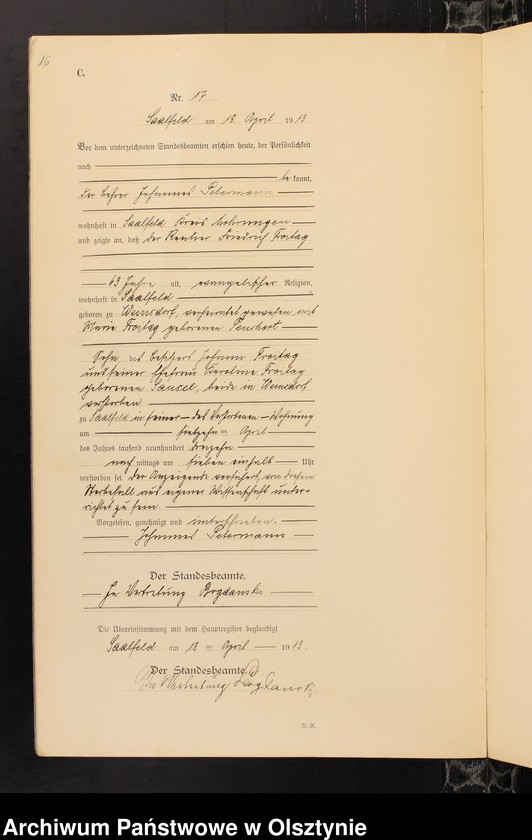 16
C.
Nr. 17
Saalfeld am 18. April 1913.
Vor dem unterzeichneten Standesbeamten erschien heute, der Persönlichkeit
nach
bekannt,
der Lehrer Johannes Petermann
wohnhaft in Saalfeld Kreis Mohrungen
und zeigte an, daß der Rentner Friedrich Freitag
63 Jahre alt, evangelischer Religion,
wohnhaft in Saalfeld
geboren zu Weinsdorf, verheiratet gewesen mit
Marie Freitag geborenen
Sohn des Besitzers Johann Freitag
und seiner Ehefrau Karoline Freitag
geborenen beide in Weinsdorf
verstorben
zu Saalfeld in seiner des Verstorbenen Wohnung
am siebzehnten April
des Jahres tausend neunhundert dreizehn
nach mittags um sieben einhalb Uhr
verstorben sei. der Anzeigende versichert, von diesem
Sterbefall aus eigener Wissenschaft unter-
richtet zu sein
Vorgelesen, genehmigt und unterschrieben.
Johannes Petermann
Der Standesbeamte.
In Vertretung Bogdanski
Die Übereinstimmung mit dem Hauptregister beglaubigt
Saalfeld am 18 ten April 1913.
Der Standesbeamte.
In Vertretung Bogdanski
Archiwum Państwowe w Olsztynie